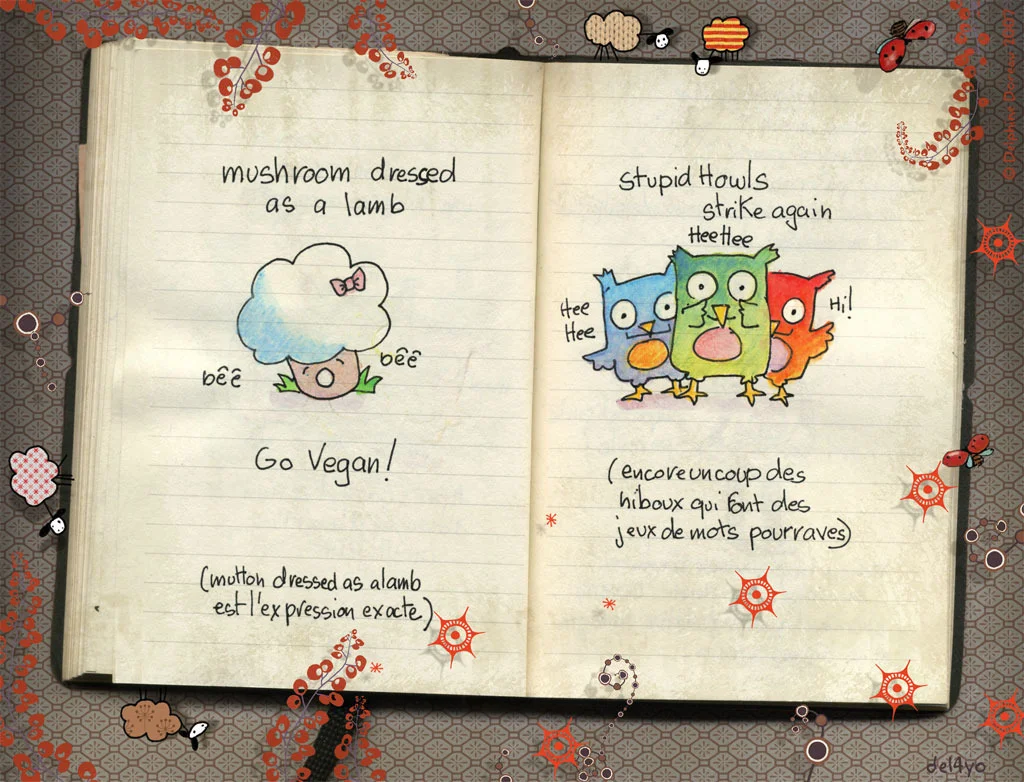 mushroom dressed
as a lamb
bêê
bêê
Go Vegan!
(mutton dressed as a lamb
est l'expression exacte)
stupid Howls
strike again
HeeHee
Hee
Hee
Hi!
(encore un coup des
hiboux qui font des
jeux de mots pourraves)
del4yo